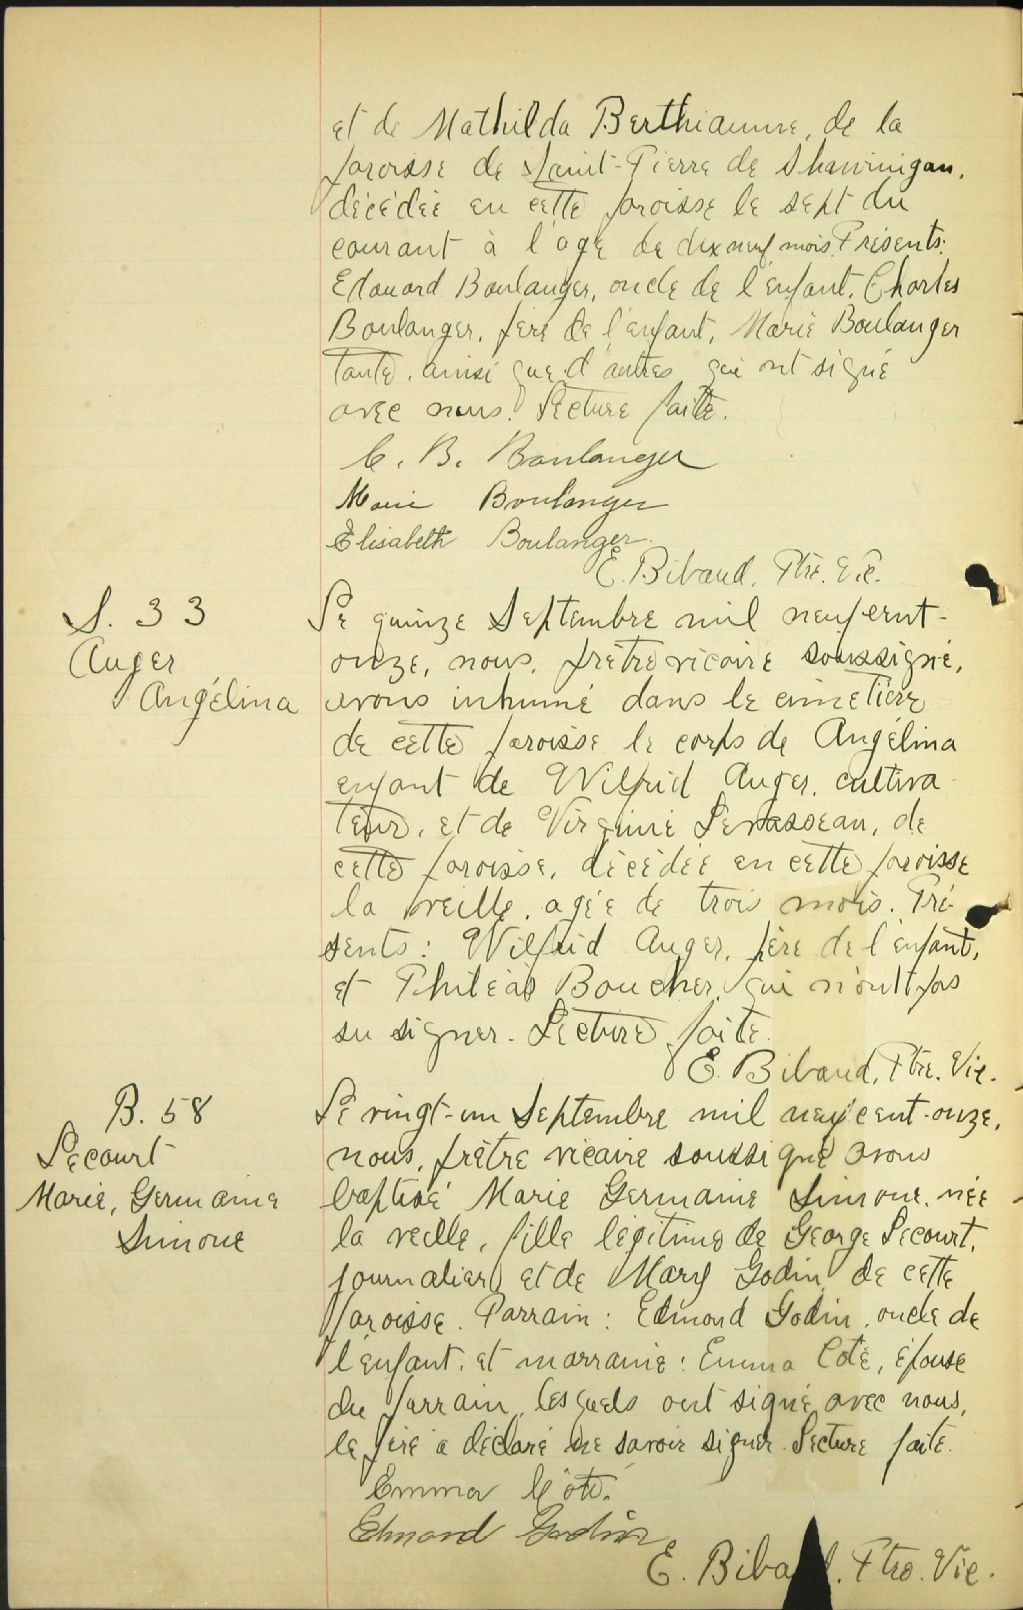 et de Mathilda Berthiaume, de la
paroisse de Saint-Pierre de Shawinigan,
décédée en cette paroisse le sept du
courant à l'age de dixneuf mois. Présents:
Edouard Boulanger, oncle de l'enfant, Charles
Boulanger, père de l'enfant, Marie Boulanger
tante, ainsi que d'autres qui ont signé
avec nous. Lecture faite.
C. B. Boulanger
Marie Boulanger
Elisabeth Boulanger
E. Bibaud, Ptre. Vic.
S. 33
Auger
Angélina
Le quinze Septembre mil neuf cent-
onze, nous, prêtre vicaire soussigné,
avons inhumé dans le cimetière
de cette paroisse le corps de Angélina
enfant de Wilfrid Auger, cultiva-
teur, et de Virginie Levasseau, de
cette paroisse, décédée en cette paroisse
la veille, agée de trois mois. Pré-
sents: Wilfrid Auger, père de l'enfant,
et Philéas Boucher, qui n'ont pas
su signer. Lecture faite.
E. Bibaud, Ptre. Vic.
B. 58
Lecourt
Marie, Germaine
Simone
Le vingt-un Septembre mil neuf cent-onze,
nous, prêtre vicaire soussigné avons
baptisé Marie Germaine Simone, née
la veille, fille légitime de George Lecourt,
journalier, et de Mary Godin, de cette
paroisse. Parrain: Edmond Godin, oncle de
l'enfant, et marraine: Emma Coté, épouse
du parrain, lesquels ont signé avec nous,
le père a déclaré ne savoir signer. Lecture faite.
Emma Côté.
Edmond Godin
E. Bibaud, Ptre. Vic.